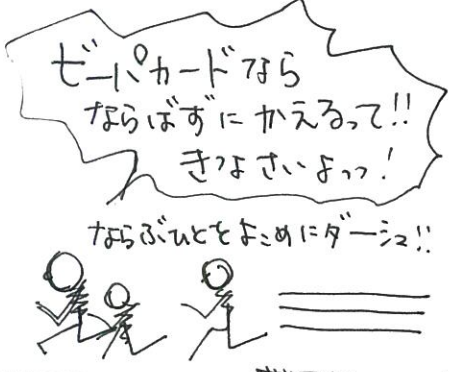 ビーパカードなら
ならばずにかえるって!!
きつよさいよっっ!
ならぶひとをよこめにダーシュ!!